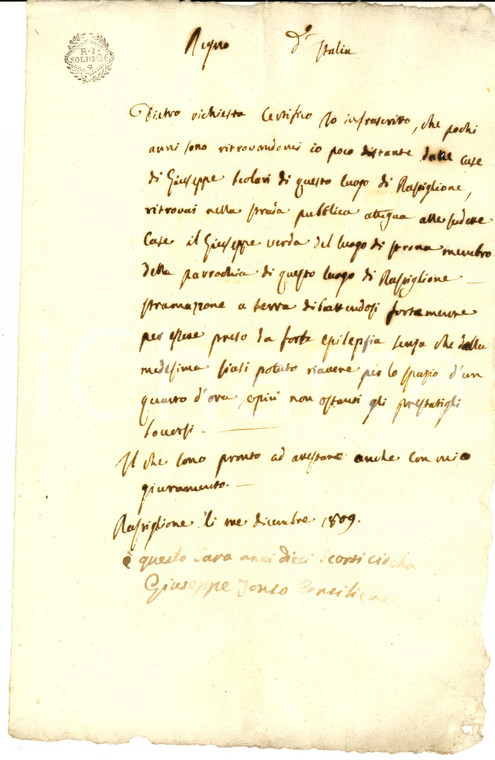 R. I.
SOLDI 20 C
Regno d'Italia
Dietro richiesta Certifico Io infrascritto, che pochi
anni sono ritrovandomi io poco distante dalle case
di Giuseppe Scolari di questo luogo di Raspiglione,
ritrovai nella strada pubblica attigua alle sudette
Case il Giuseppe verda del luogo di strona membro
della parrochia di questo luogo di Raspiglione
stramazzone a terra dibattendosi fortemente
per essere preso da forte epilepsia senza che dalla
medesima siasi potuto riavere per lo spazio d'un
quarto d'ora, e più non ostanti gli prestatigli
soccorsi.
Il che sono pronto ad attestare anche con mio
giuramento.
Raspiglione li tre dicembre 1809.
è questo sara anni dieci scorsi
Giuseppe